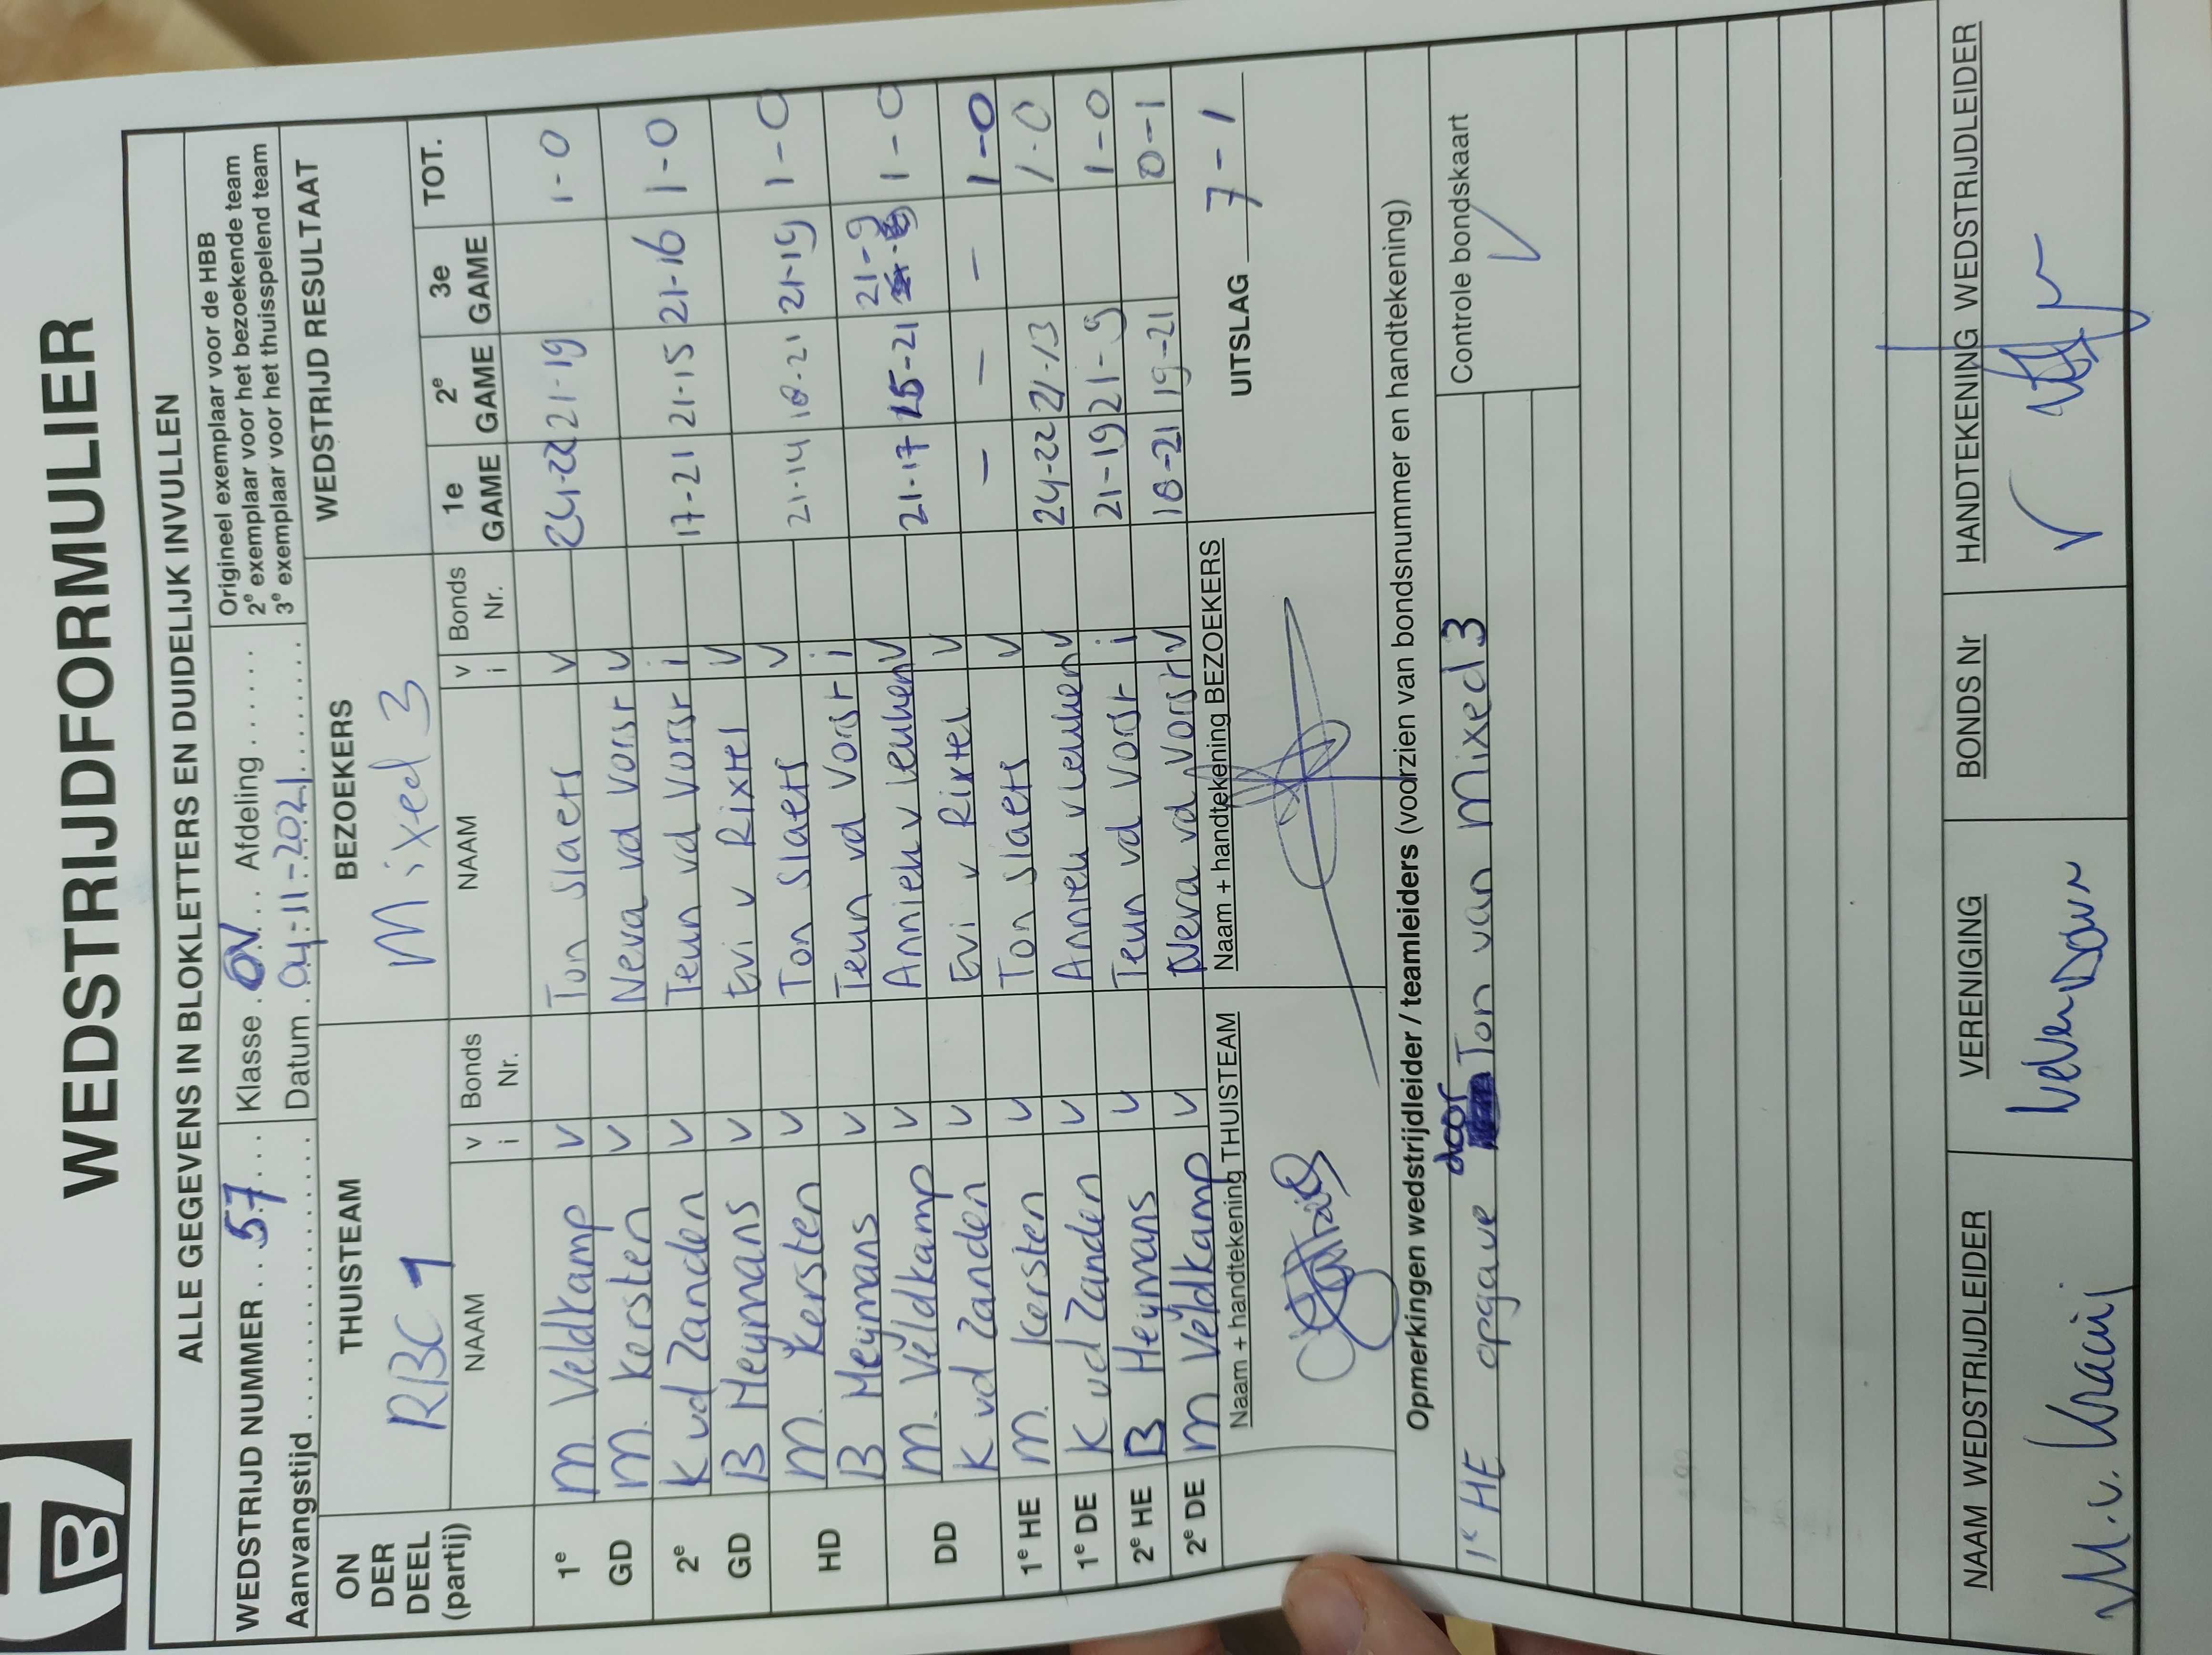 WEDSTRIJDFORMULIER
B
ALLE GEGEVENS IN BLOKLETTERS EN DUIDELIJK INVULLEN
WEDSTRIJD NUMMER .. 57 ... Klasse . ... Afdeling ......
Aanvangstijd .................. Datum . 04-11-2021 .......
Origineel exemplaar voor de HBB
2e exemplaar voor het bezoekende team
3e exemplaar voor het thuisspelend team
ON DER DEEL (partij) THUISTEAM BEZOEKERS WEDSTRIJD RESULTAAT
RBC 1 Mixed 3
NAAM v i Bonds Nr. NAAM v i Bonds Nr. 1e GAME 2e GAME 3e GAME TOT.
1e M Veldkamp v Ton Slaets v 24-22 21-19 1-0
GD M. Kersten v Neva vd Vorst v
2e K vd Zanden v Teun vd Vorst i 17-21 21-15 21-16 1-0
GD B Heymans v Evi v Rixtel v
HD M. Kersten v Ton Slaets v 21-14 18-21 21-19 1-0
B Heymans v Teun vd Vorst i
DD M. Veldkamp v Anniek v Leuken v 21-17 15-21 21-9 1-0
K vd Zanden v Evi v Rixtel v
1e HE M. Kersten v Ton Slaets v - - - 1-0
1e DE K vd Zanden v Anniek v Leuken v 24-22 21-13 1-0
2e HE B Heymans v Teun vd Vorst i 21-19 21-9 1-0
2e DE M Veldkamp v Neva vd Vorst v 18-21 19-21 0-1
Naam + handtekening THUISTEAM Naam + handtekening BEZOEKERS UITSLAG 7-1
Opmerkingen wedstrijdleider / teamleiders (voorzien van bondsnummer en handtekening)
1e HE opgave door Ton van Mixed 3
Controle bondskaart
NAAM WEDSTRIJDLEIDER VERENIGING BONDS Nr HANDTEKENING WEDSTRIJDLEIDER
M. v.